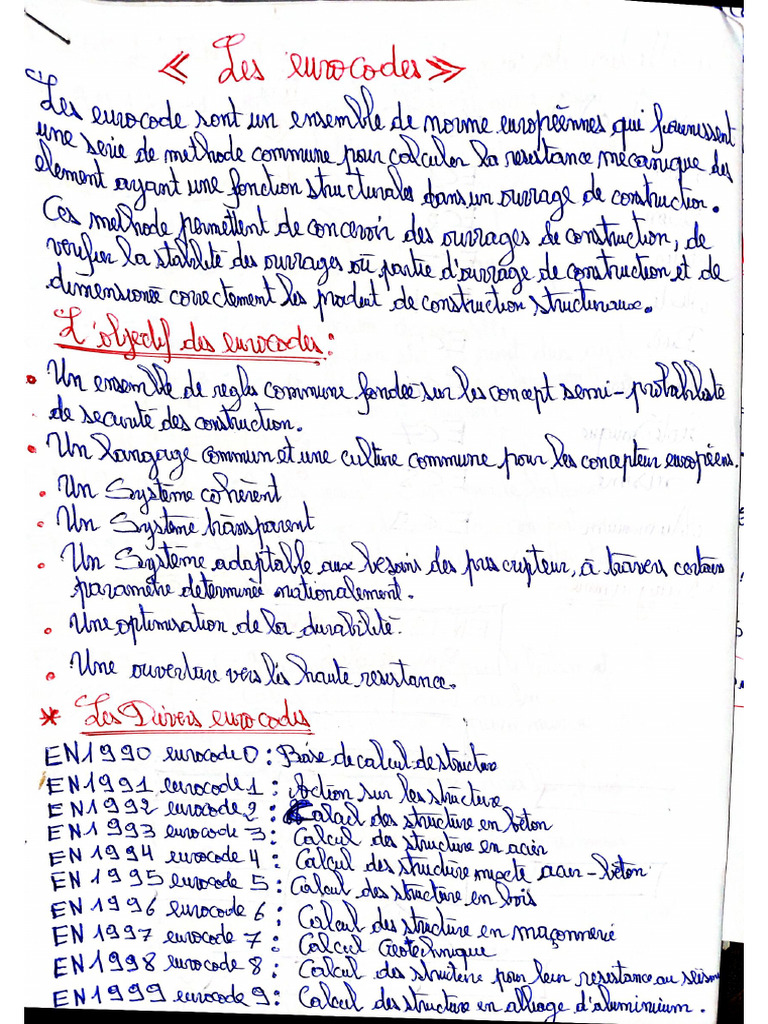 « Les eurocodes »
Les eurocode sont un ensemble de norme européennes qui fournissent
une serie de methode commune pour calculer la resistance mecanique des
element ayant une fonction structurales dans un ouvrage de construction.
Ces methode permettent de concevoir des ouvrages de construction, de
verifier la stabilité des ouvrages où partie d'ouvrage de construction et de
dimensionné correctement les produit de construction structuraux.
L'objectif des eurocodes :
• Un ensemble de regle commune fondée sur les concept semi-probabiliste
de securité des construction.
• Un langage commun et une culture commune pour les concepteur européens.
• Un Système cohèrent
• Un Système transparent
• Un Système adaptable aux besoins des prescripteur, à travers certains
paramètre determinée nationalement.
• Une optimisation de la durabilité.
• Une ouverture vers les haute resistance.
* Les Divers eurocodes
EN1990 eurocode 0 : Base de calcul de structure
EN1991 eurocode 1 : Action sur les structure
EN1992 eurocode 2 : Calcul des structure en béton
EN1993 eurocode 3 : Calcul des structure en acier
EN1994 eurocode 4 : Calcul des structure mixte acier-béton
EN1995 eurocode 5 : Calcul des structure en bois
EN1996 eurocode 6 : Calcul des structure en maçonnerie
EN1997 eurocode 7 : Calcul Geotechnique
EN1998 eurocode 8 : Calcul des structure pour leur resistance au
EN1999 eurocode 9 : Calcul des structure en alliage d'aluminium.